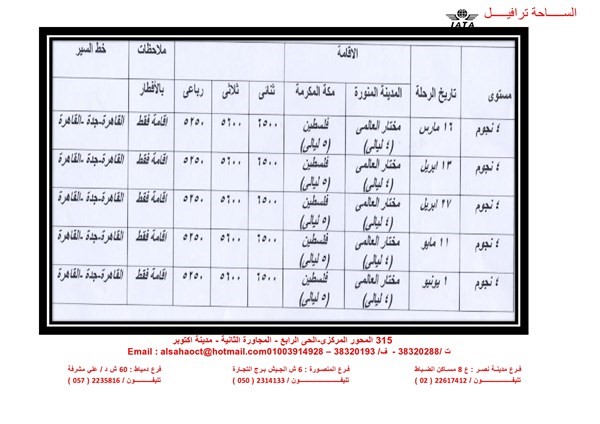 الساحة ترافيل
IATA
مستوى تاريخ الرحلة الاقامة ملاحظات خط السير
المدينة المنورة مكة المكرمة ثنائى ثلاثى رباعى بالأفطار
٤ نجوم ١٦ مارس مختار العالمى (٤ ليالى) فلسطين (٥ ليالى) ٦٥٠٠ ٥٦٠٠ ٥٢٥٠ اقامة فقط القاهرة-جدة -القاهرة
٤ نجوم ١٣ ابريل مختار العالمى (٤ ليالى) فلسطين (٥ ليالى) ٦٥٠٠ ٥٦٠٠ ٥٢٥٠ اقامة فقط القاهرة-جدة -القاهرة
٤ نجوم ٢٧ ابريل مختار العالمى (٤ ليالى) فلسطين (٥ ليالى) ٦٥٠٠ ٥٦٠٠ ٥٢٥٠ اقامة فقط القاهرة-جدة -القاهرة
٤ نجوم ١١ مايو مختار العالمى (٤ ليالى) فلسطين (٥ ليالى) ٦٥٠٠ ٥٦٠٠ ٥٢٥٠ اقامة فقط القاهرة-جدة -القاهرة
٤ نجوم ١ يونيو مختار العالمى (٤ ليالى) فلسطين (٥ ليالى) ٦٥٠٠ ٥٦٠٠ ٥٢٥٠ اقامة فقط القاهرة-جدة -القاهرة
315 المحور المركزى-الحى الرابع - المجاورة الثانية - مدينة اكتوبر
ت /38320288 - ف/ 38320193 – 01003914928 Email : alsahaoct@hotmail.com
فرع مدينة نصر : ع 8 مساكن الضباط فرع المنصورة : 6 ش الجيش برج التجارة فرع دمياط : 60 ش د / علي مشرفة
تليفون / 22617412 ( 02 ) تليفون / 2314133 ( 050 ) تليفون / 2235816 ( 057 )